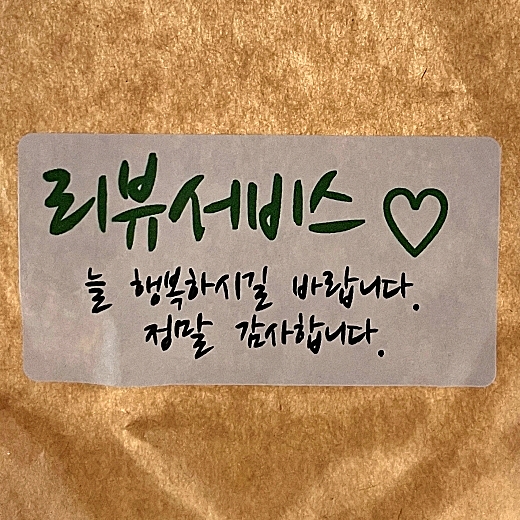 리뷰서비스 ♡
늘 행복하시길 바랍니다.
정말 감사합니다.